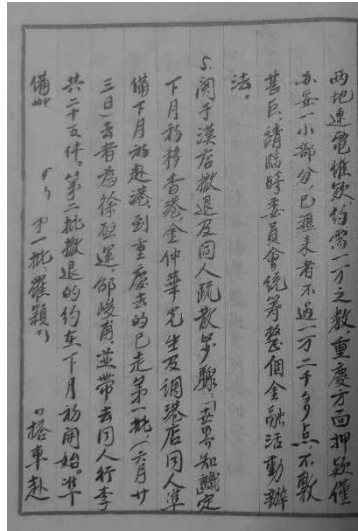 兩地連電催欵約需一万之數，重慶方面押欵僅
办妥一小部分，已滙来者不过一万二千多点，不敷
甚巨，請臨時委員會統筹整個金融活動辦
法。
5.関于漢店撤退及同人疏散步驟：世界知識定
下月初移香港，金仲華先生及調港店同人準
備下月初赴港，到重慶去的已走第一批（六月廿
三日）去者為徐 運、邵峻甫，並帶去同人行李
共二十五件。第二批撤退的約在下月初開始。準
備 一批，羅穎 搭車赴